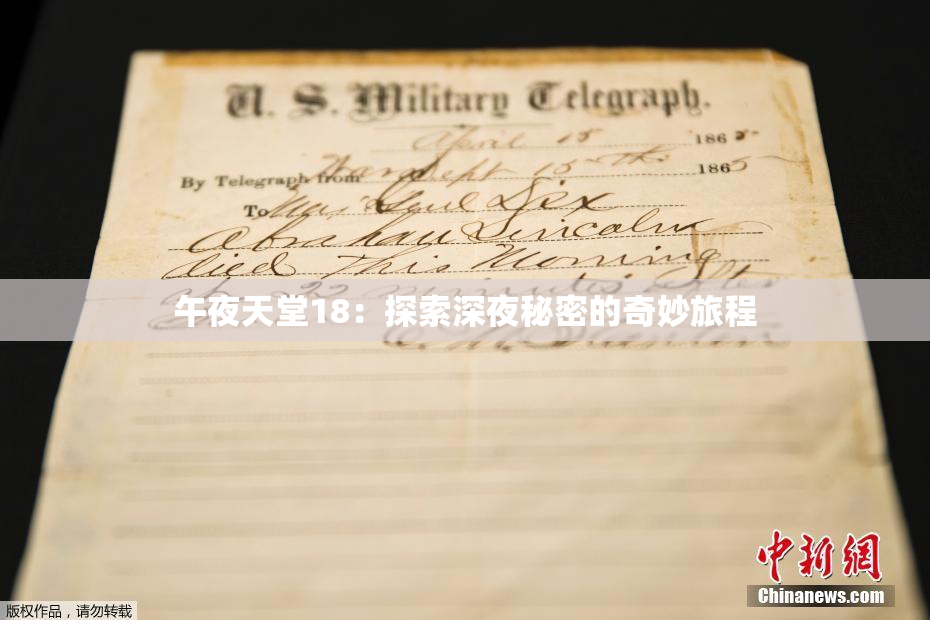 U. S. Military Telegraph.
April 15 1865
By Telegraph from War Dept 15th 1865
To Maj Genl Dix
Abraham Lincoln
died This Morning
at 22 minutes after
午夜天堂18：探索深夜秘密的奇妙旅程
E. M. Stanton
中新网
Chinanews.com
版权作品，请勿转载